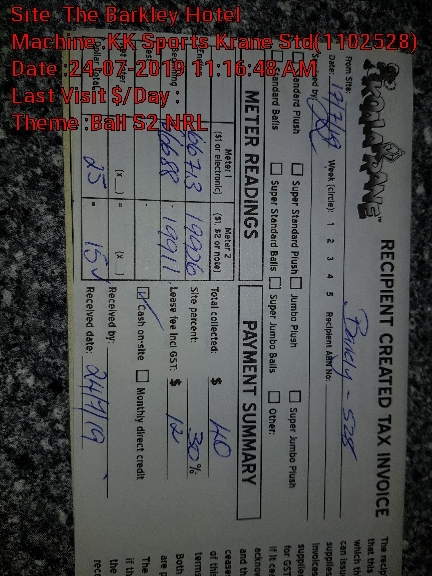 Site :The Barkley Hotel
Machine: KK Sports Krane Std(1102528)
Date :24-07-2019 11:16:48 AM
Last Visit $/Day :
Theme :Ball S2 NRL
KOOLA KRANE
RECIPIENT CREATED TAX INVOICE
From Site:
Date: 17/7/19 Week (circle): 1 2 3 4 5 Recipient ABN No:
Standard Plush Super Standard Plush Jumbo Plush Super Jumbo Plush
Standard Balls Super Standard Balls Super Jumbo Balls Other:
METER READINGS
PAYMENT SUMMARY
Meter 1
($1 or electronic)
Meter 2
($1, $2 or note)
19926
19911
(x )
(x )
= 25
= 15
Total collected: $ 40
Site percent: 30%
Lease fee Incl GST: $ 12
Cash on-site Monthly direct credit
Received by:
Received date: 24/7/19
The recip
that this
which th
can issu
supplies
invoices
supplie
for GS
if it ce
acknow
and th
cease
of thi
terms
Both
are p
The
if th
the
rec